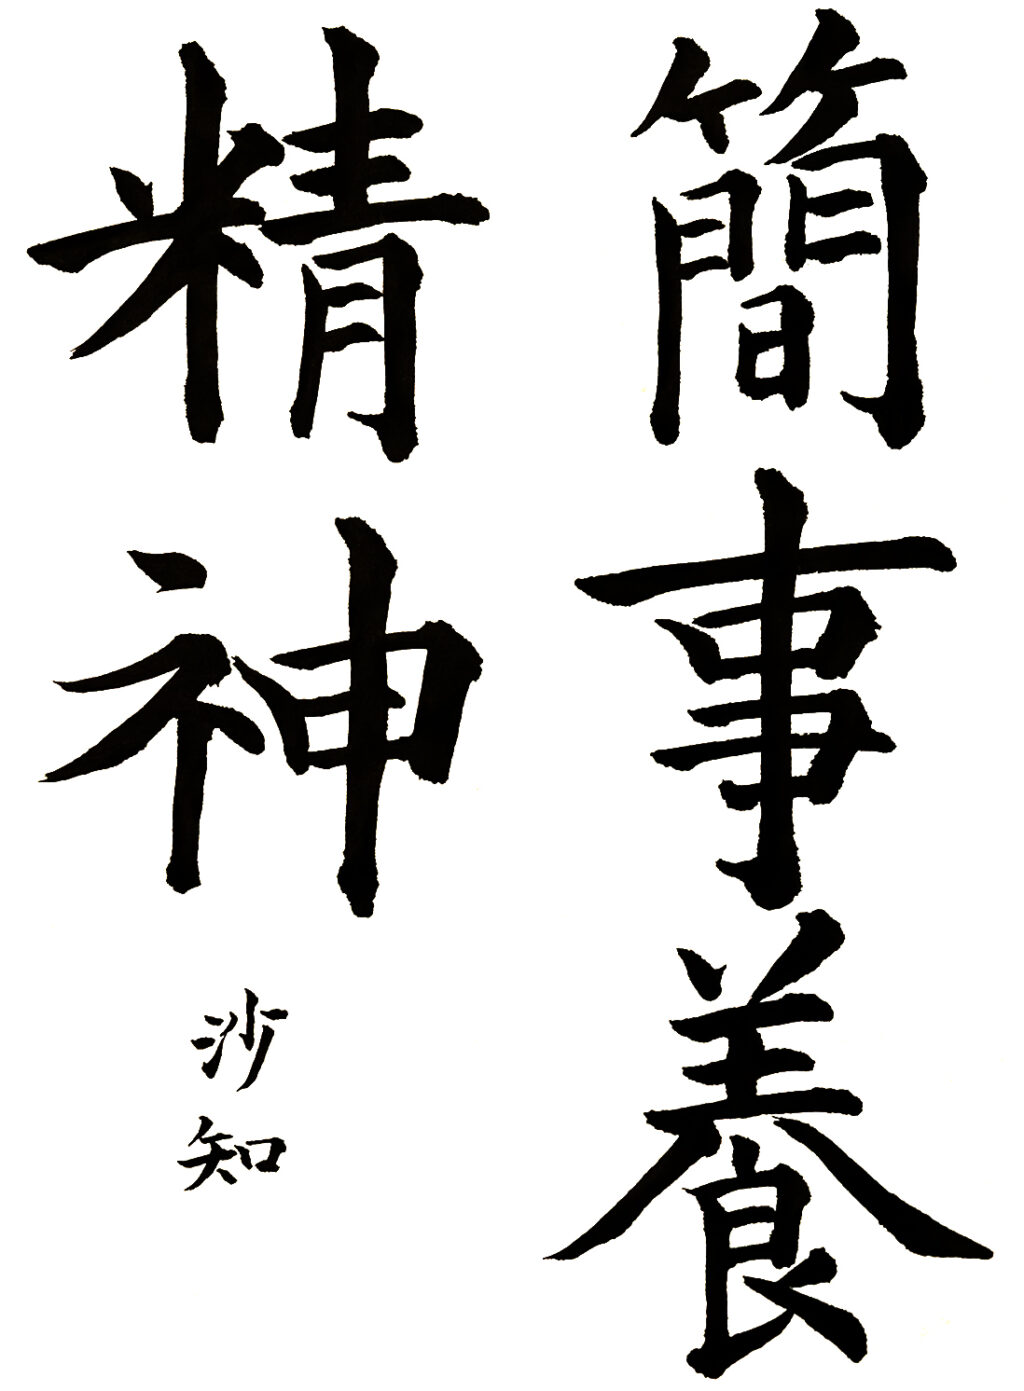 簡事養
精神
沙知